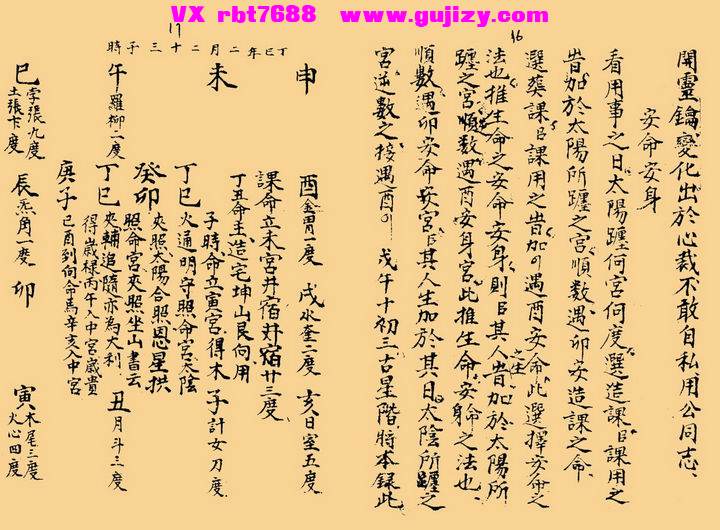 VX rbt7688 www.gujizy.com
16
開靈鑰變化出於心裁不敢自私用公同志、
安命安身
看用事之日太陽躔何宮何度選造課以課用之
昔加於太陽所躔之宮順数遇卯安造課之命
選葬課以課用之昔加遇酉安命此選擇安命之
法也推生命之安命安身則以其人之生昔加於太陽所
躔之宮順数遇酉安身宮此推生命安身命之法也
順数遇卯安命安宮以其人生加於其日太陰所躔之
宮逆数之接遇酉 戊午十初三古星階將本錄此
17
丁巳年二月二十三子時
申
酉金胃一度 戌水奎二度 亥日室五度
未
課命立未宮井宿井宿廿三度
丁丑命主造宅坤山艮向用
子時命立寅宮得木 子計女刀度
丁巳 火通明守照命宮太陰
癸卯 夾照太陽合照恩星拱
照命宮夾照坐山書云 丑月斗三度
午羅柳二度
丁巳 夾輔追隨亦為大利
得歲祿丙午入中宮歲貴
庚子 巳酉到向命馬辛亥入中宮
寅木尾三度
火心四度
巳孛張九度
土張卞度
辰炁角一度 卯